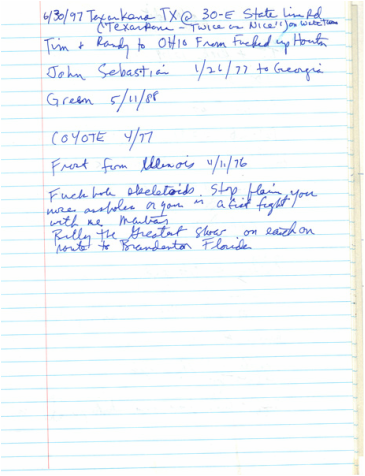 6/30/97 Texarkana TX @ 30-E State Line Rd
("Texarkana - Twice as Nice"!) on
Tim & Randy to OHIO From Fucked up Houston
John Sebastian 1/26/77 to Georgia
Green 5/11/88
COYOTE 4/77
Frost from Illinois 4/11/76
Fuck hole skeletoids. Stop you
assholes or you in a fist fight
with me
Billy the Greatest show on earth on
route to Bradenton Florida